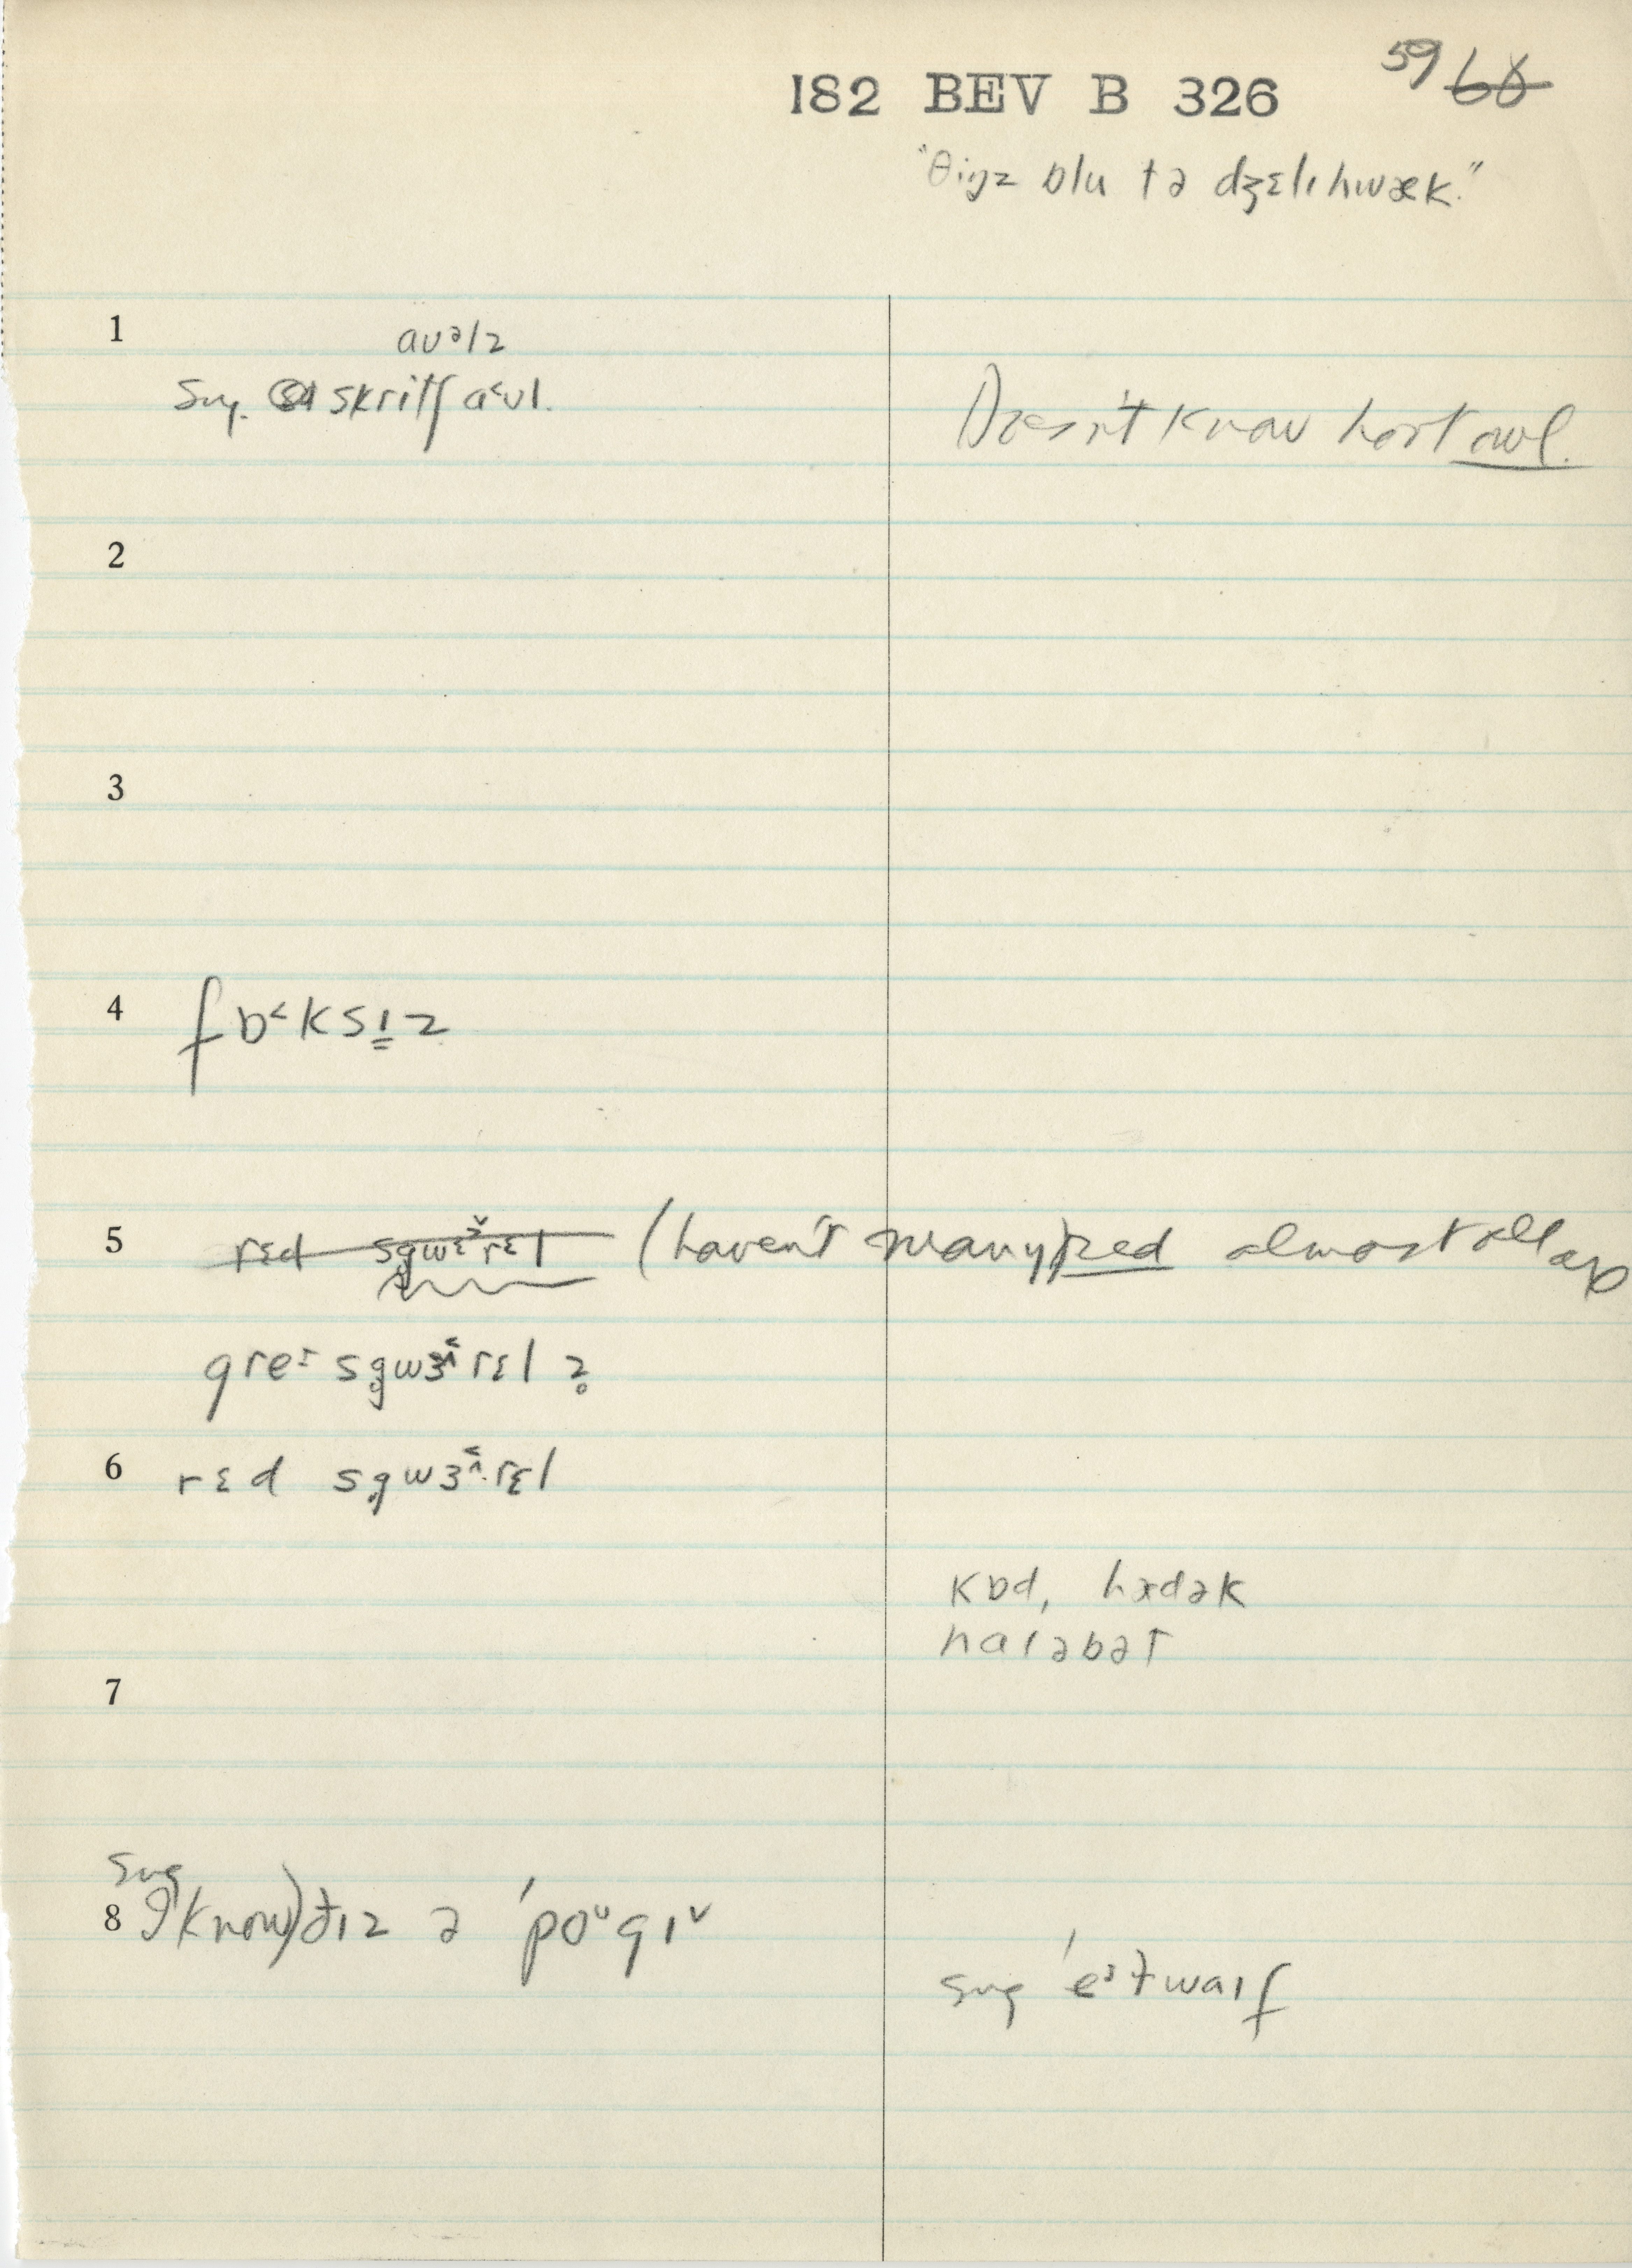 182 BEV B 326 59 ~~60~~
"θiŋz ɒlu tə dʒɛlɩ hwæk."
1
aʊəlz
sug. skritʃ a˂ʊl.
Doesn't know hoot owl.
2
3
4 fɒ˂ksɩz
5 ~~rɛd sgwɛrɛl~~ (haven't many) red almost all are
greɪ sg̥wɜ˂rɛl z̥
6 rɛd sg̥wɜ˂rɛl
kɒd, hædək
haləbət
7
sug
8 I (know) ðɩz ə ˈpoᵘgɩˇ
sug ˈeᵊtwaɩf